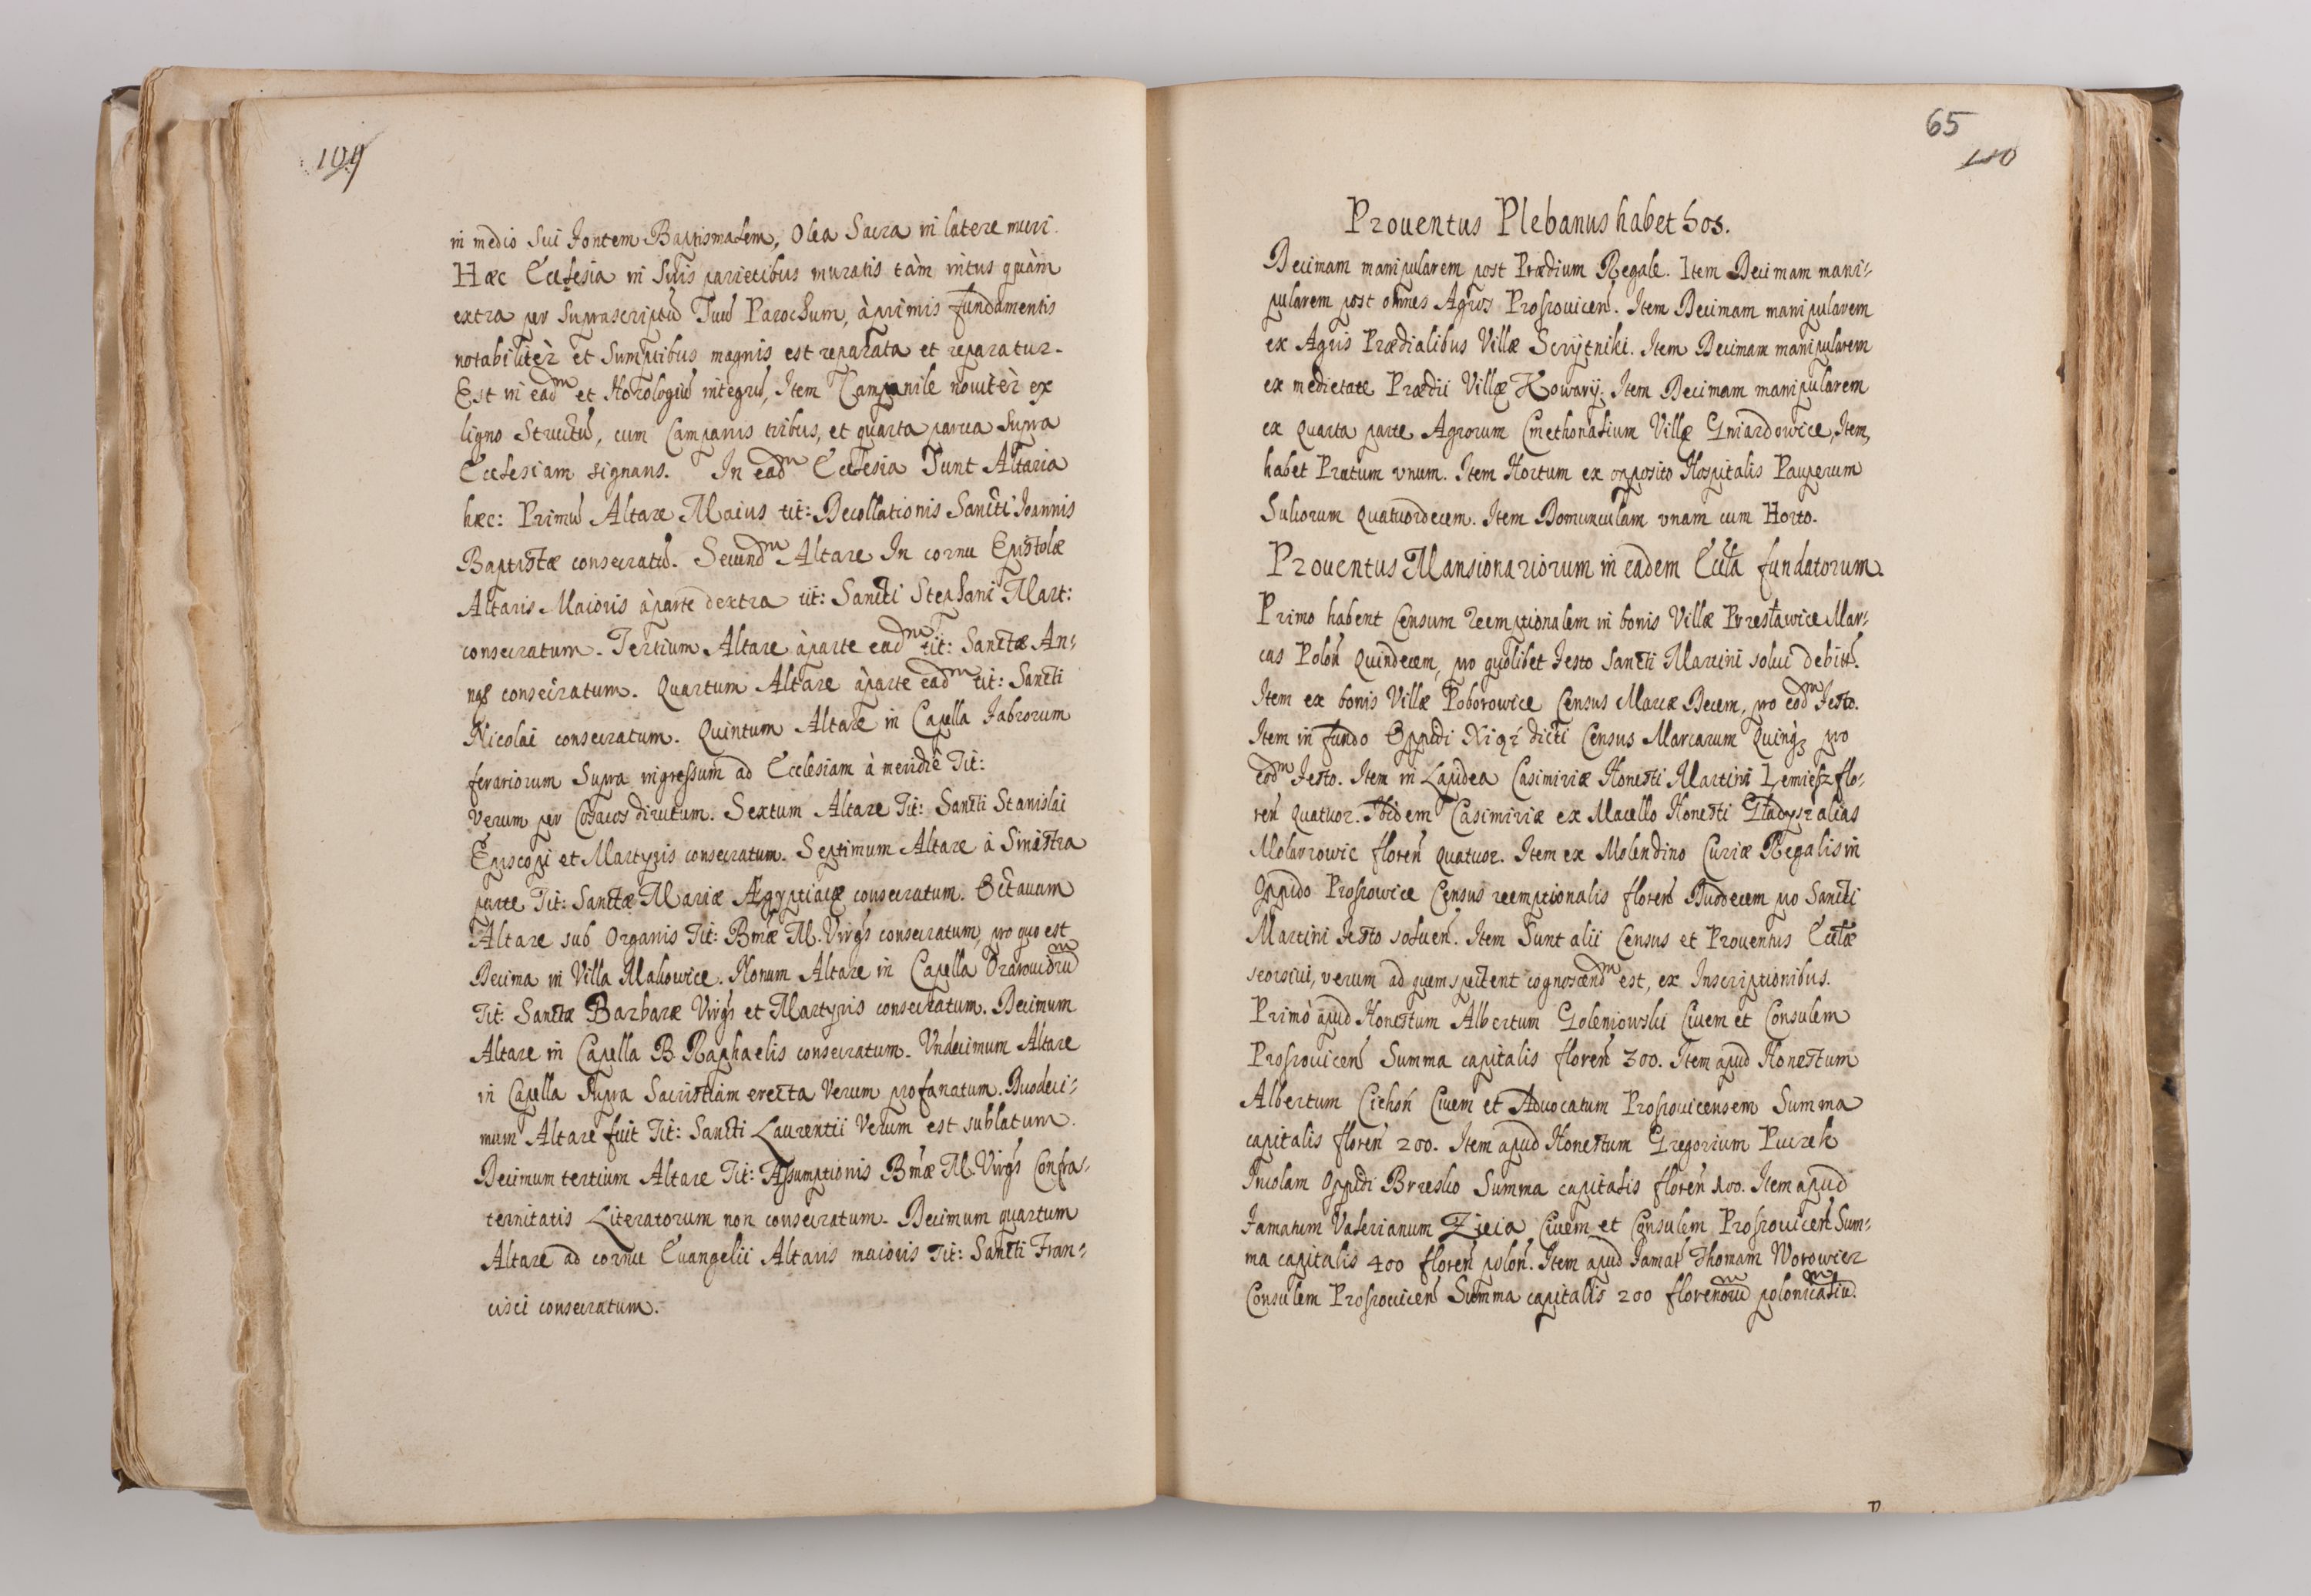 109
in medio sui fontem Baptismalem, Olea Sacra in latere muri.
Hæc Ecclesia in suis parietibus muratis tàm intus quàm
extra per suprascriptū suū Parochum, à primis fundamentis
notabilitèr et sumptibus magnis est reparata et reparatur.
Est in eadm et Horologiū integrū, Item Campanile novitèr ex
ligno structū, cum Campanis tribus, et quarta parva supra
Ecclesiam signans. In eadm Ecclesia sunt Altaria
hæc: Primū Altare Maius tit: Decollationis Sancti Joannis
Baptistæ consecratū. Secundm Altare In cornu Epistolæ
Altaris Maioris à parte dextra tit: Sancti Stephani Mart:
consecratum. Tertium Altare à parte eadm tit: Sanctæ An-
næ consecratum. Quartum Altare à parte eadm tit: Sancti
Nicolai consecratum. Quintum Altare in Capella Fabrorum
ferariorum supra ingressum ad Ecclesiam à meridie Tit:
verum per Cosacos dirutum. Sextum Altare Tit: Sancti Stanislai
Episcopi et Martyris consecratum. Septimum Altare à Sinistra
parte Tit: Sanctæ Mariæ Ægyptiacæ consecratum. Octavum
Altare sub Organis Tit: Bmæ M. Virgs consecratum, pro quo est
Decima in Villa Makowice. Nonum Altare in Capella
Tit: Sanctæ Barbaræ Virgs et Martyris consecratum. Decimum
Altare in Capella B. Raphaelis consecratum. Undecimum Altare
in Capella supra Sacristiam erecta verum profanatum. Duodeci-
mum Altare fuit Tit: Sancti Laurentii verum est sublatum.
Decimum tertium Altare Tit: Assumptionis Bmæ M. Virgs Confra-
ternitatis Literatorum non consecratum. Decimum quartum
Altare ad cornu Evangelii Altaris maioris Tit: Sancti Fran-
cisci consecratum.
65
110
Proventus Plebanus habet hos.
Decimam manipularem post Prædium Regale. Item Decimam mani-
pularem post omnes Agros Proszovicen. Item Decimam manipularem
ex Agris Prædialibus Villæ Szczytniki. Item Decimam manipularem
ex medietate Prædii Villæ Kowary. Item Decimam manipularem
ex quarta parte Agrorum Cmethonalium Villæ Gniazdowice, Item,
habet Pratum vnum. Item Hortum ex opposito Hospitalis Pauperum
Sulcorum quatuordecem. Item Domunculam vnam cum Horto.
Proventus Mansionariorum in eadem Eccla fundatorum.
Primo habent Censum reemptionalem in bonis Villæ Przesławice Mar-
cas Polon Quindecem, pro quolibet festo Sancti Martini solui debitt.
Item ex bonis Villæ Poborowice Census Marcæ Decem, pro eodm Festo.
Item in fundo Oppidi dicti Census Marcarum Quinq3 pro
eodm Festo. Item in Lapidea Casimiriæ Honesti Martini Lemiesz flo-
ren quatuor. Ibidem Casimiriæ ex Macello Honesti Gładysz alias
floren quatuor. Item ex Molendino Curiæ Regalis in
Oppido Proszowice Census reemptionalis floren Duodecem pro Sancti
Martini Festo solven. Item Sunt alii Census et Proventus Ecclæ
, verum ad quem spectent cognoscendm est, ex Inscriptionibus.
Primò apud Honestum Albertum Goleniowski Civem et Consulem
Proszovicen Summa capitalis floren 300. Item apud Honestum
Albertum Cichoń Civem et Advocatum Proszovicensem Summa
capitalis floren 200. Item apud Honestum Gregorium Pucrek
Incolam Oppidi Brzesko Summa capitalis floren 100. Item apud
Famatum Valerianum Zieia Civem et Consulem Proszovicen Sum-
ma capitalis 400 floren polon. Item apud Famat Thomam Worowicz
Consulem Proszovicen Summa capitalis 200 florenorū polonicaliū.